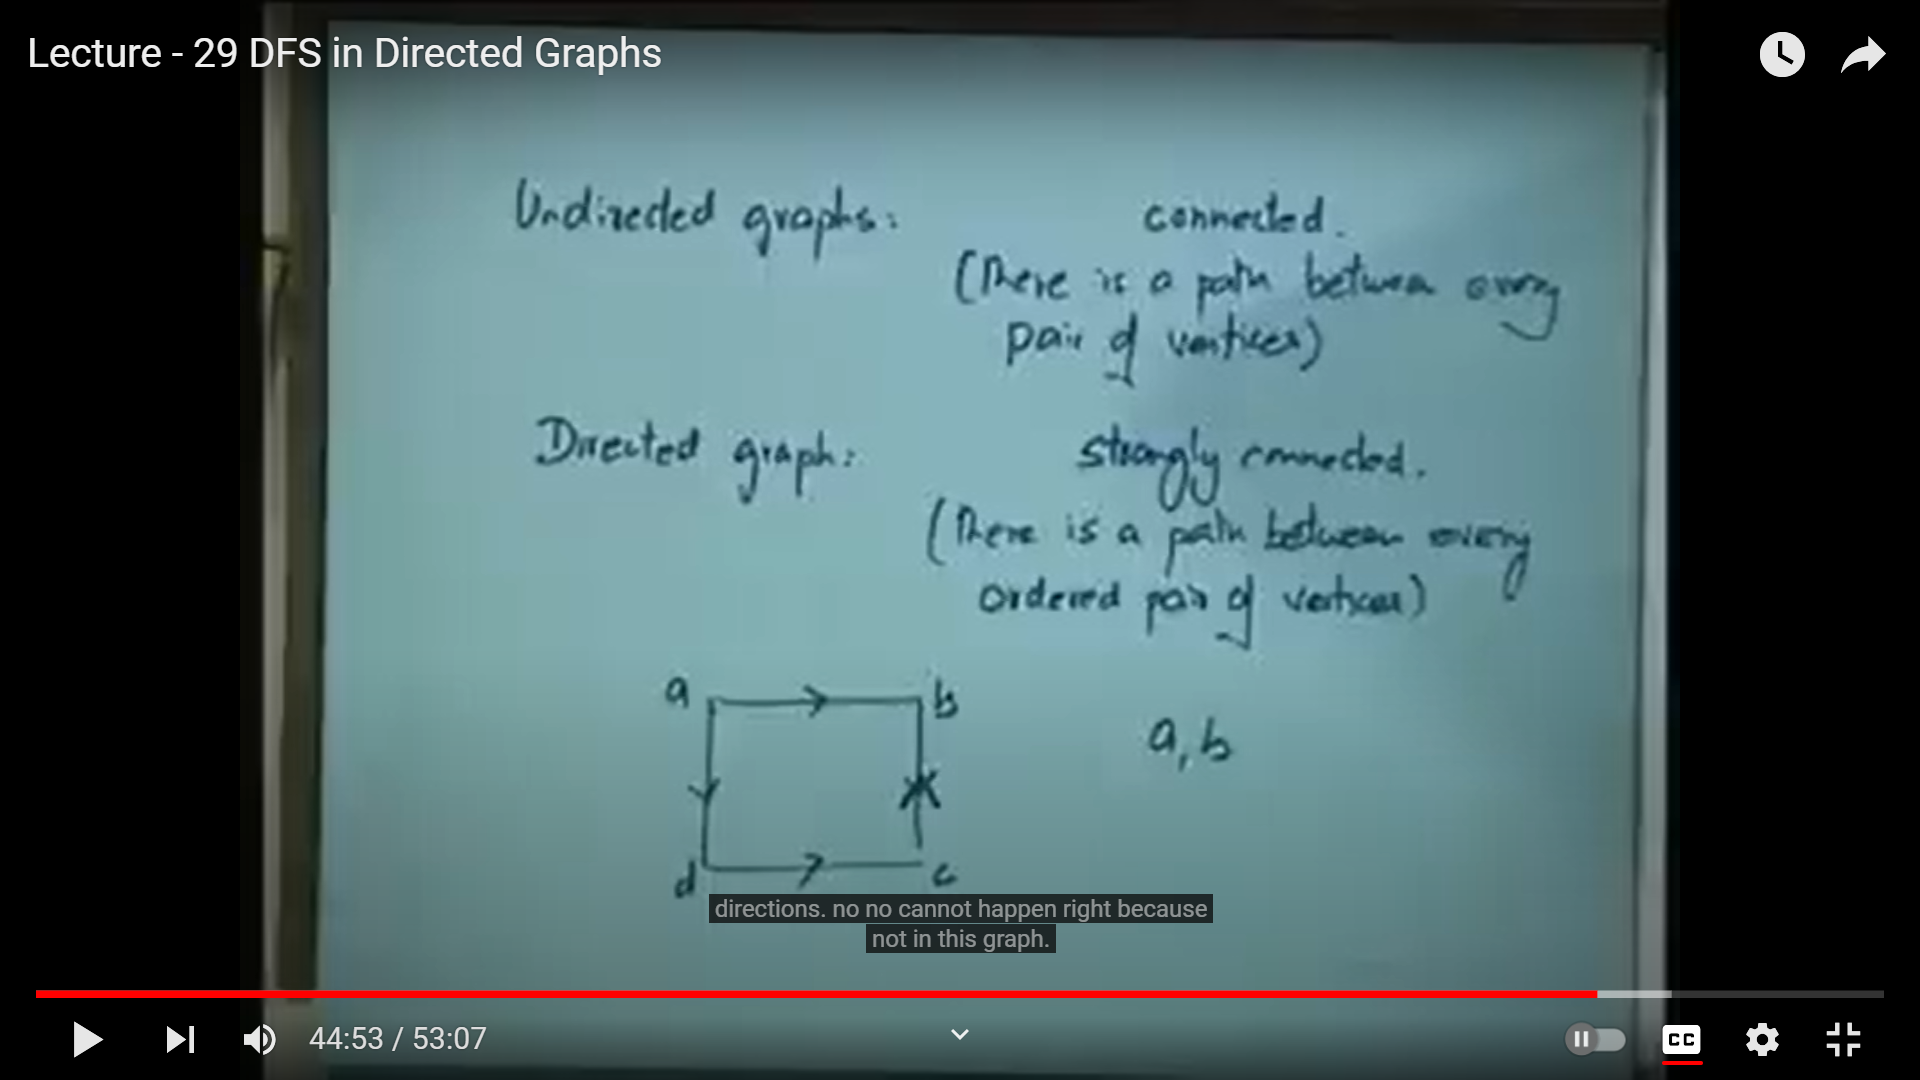 Lecture - 29 DFS in Directed Graphs
Undirected graphs: connected.
(There is a path between every
pair of vertices)
Directed graph: strongly connected.
(There is a path between every
ordered pair of vertices)
a b
a, b
d c
directions. no no cannot happen right because
not in this graph.
44:53 / 53:07
CC